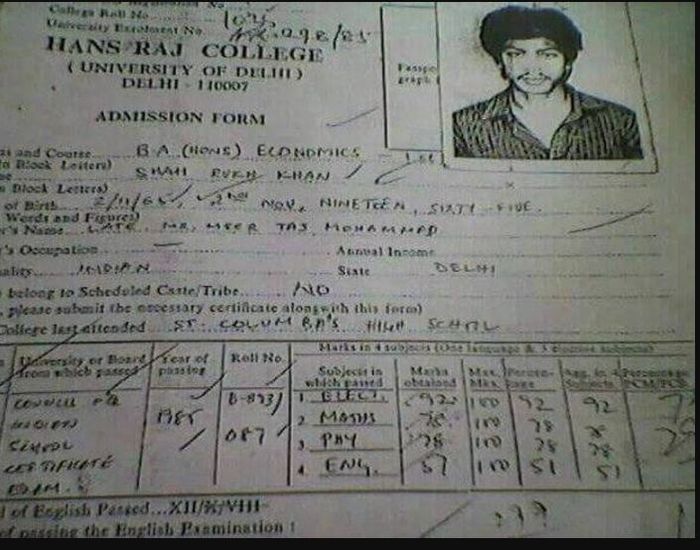 College Roll No. 1025
University Enrolment No. 298/85
HANS RAJ COLLEGE
( UNIVERSITY OF DELHI )
DELHI - 110007
ADMISSION FORM
and Course B A (HONS) ECONOMICS
n Block Letters)
SHAH RUKH KHAN
n Block Letters)
of Birth 2/11/65, 2ND NOV, NINETEEN, SIXTY-FIVE.
Words and Figures)
r's Name LATE. MR. MEER TAJ MOHAMMAD
's Occupation Annual Income
ality INDIAN State DELHI
belong to Scheduled Caste/Tribe NO
, please submit the necessary certificate alongwith this form)
College last attended ST. COLUMBA'S HIGH SCHOOL
Marks in 4 subjects (One language & 3 elective subjects)
University or Board from which passed Year of passing Roll No. Subjects in which passed Marks obtained Max. Percen- tage Agg. in 4 Subjects Percentage
COUNCIL FOR B-893/ 1. ELECT. 92 100 92 92
INDIAN 1985 2 MATHS 78 100 78 78
SCHOOL 087 3. PHY 78 100 78 78
CERTIFICATE 4. ENG. 51 100 51 51
EXAM.
l of English Passed...XII/X/VIII
of passing the English Examination :